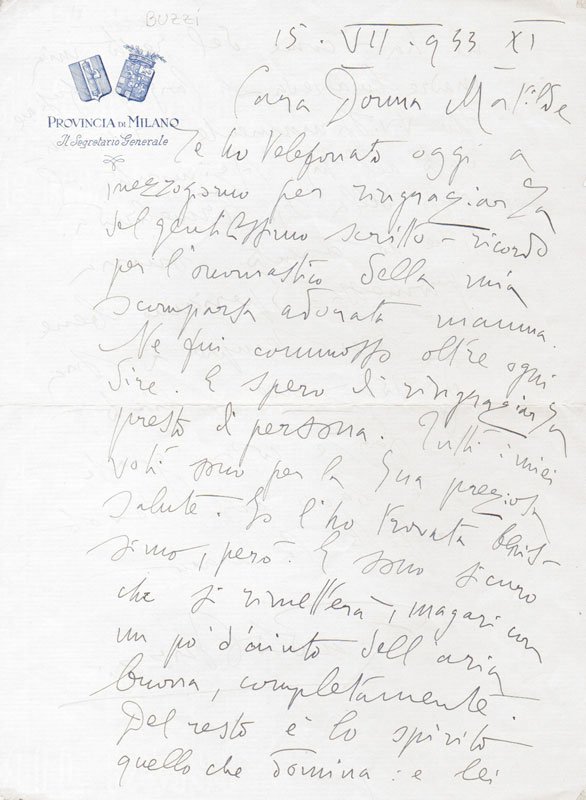 BUZZI
15 · VII · 933 XI
PROVINCIA DI MILANO
Il Segretario Generale
Cara Donna Matilde
Le ho telefonato oggi a
mezzogiorno per ringraziarLa
del gentilissimo scritto - ricordo
per l'onomastico della mia
scomparsa adorata mamma.
Ne fui commosso oltre ogni
dire. E spero di ringraziarLa
presto di persona. Tutti i miei
voti sono per la Sua preziosa
salute. Io l'ho trovata benis-
simo, però. E sono sicuro
che si rimetterà, magari con
un po' d'aiuto dell'aria
buona, completamente.
Del resto è lo spirito
quello che domina: e lei